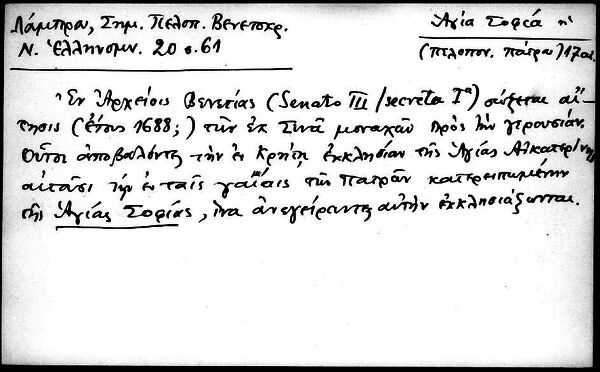 Λάμπρου, Σημ. Πελοπ. Βενετοκρ.
Ν. Ἑλληνομν. 20 σ. 61
Ἁγία Σοφία ἡ
(Πελοπον. Πάτραι) 17 αἰ.
Ἐν Ἀρχείοις Βενετίας (Senato III/secreta Iª) σώζεται αἴ-
τησις (ἔτους 1688;) τῶν ἐκ Σινᾶ μοναχῶν πρὸς τὴν γερουσίαν.
Οὗτοι ἀποβαλόντες τὴν ἐν Κρήτῃ ἐκκλησίαν τῆς Ἁγίας Αἰκατερίνης
αἰτοῦσι τὴν ἐν ταῖς γαίαις τῶν Πατρῶν κατερειπωμένην
τῆς Ἁγίας Σοφίας, ἵνα ἀνεγείραντες αὐτὴν ἐκκλησιάζωνται.